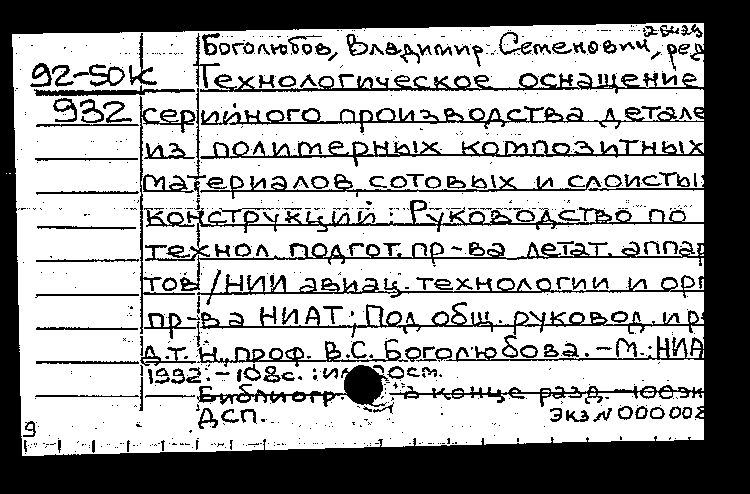 26429
Боголюбов, Владимир Семенович, ред
92-50К Технологическое оснащение
932 серийного производства детале
из полимерных композитных
материалов, сотовых и слоисты
конструкций: Руководство по
технол. подгот. пр-ва летат. аппар
тов /НИИ авиац. технологии и орг
пр-ва НИАТ; Под общ. руковод. и р
д.т.н., проф. В.С. Боголюбова. - М.: НИА
1992. - 108с.: ил. 20см.
Библиогр. в конце разд. - 100эк
ДСП. Экз N 000008
9